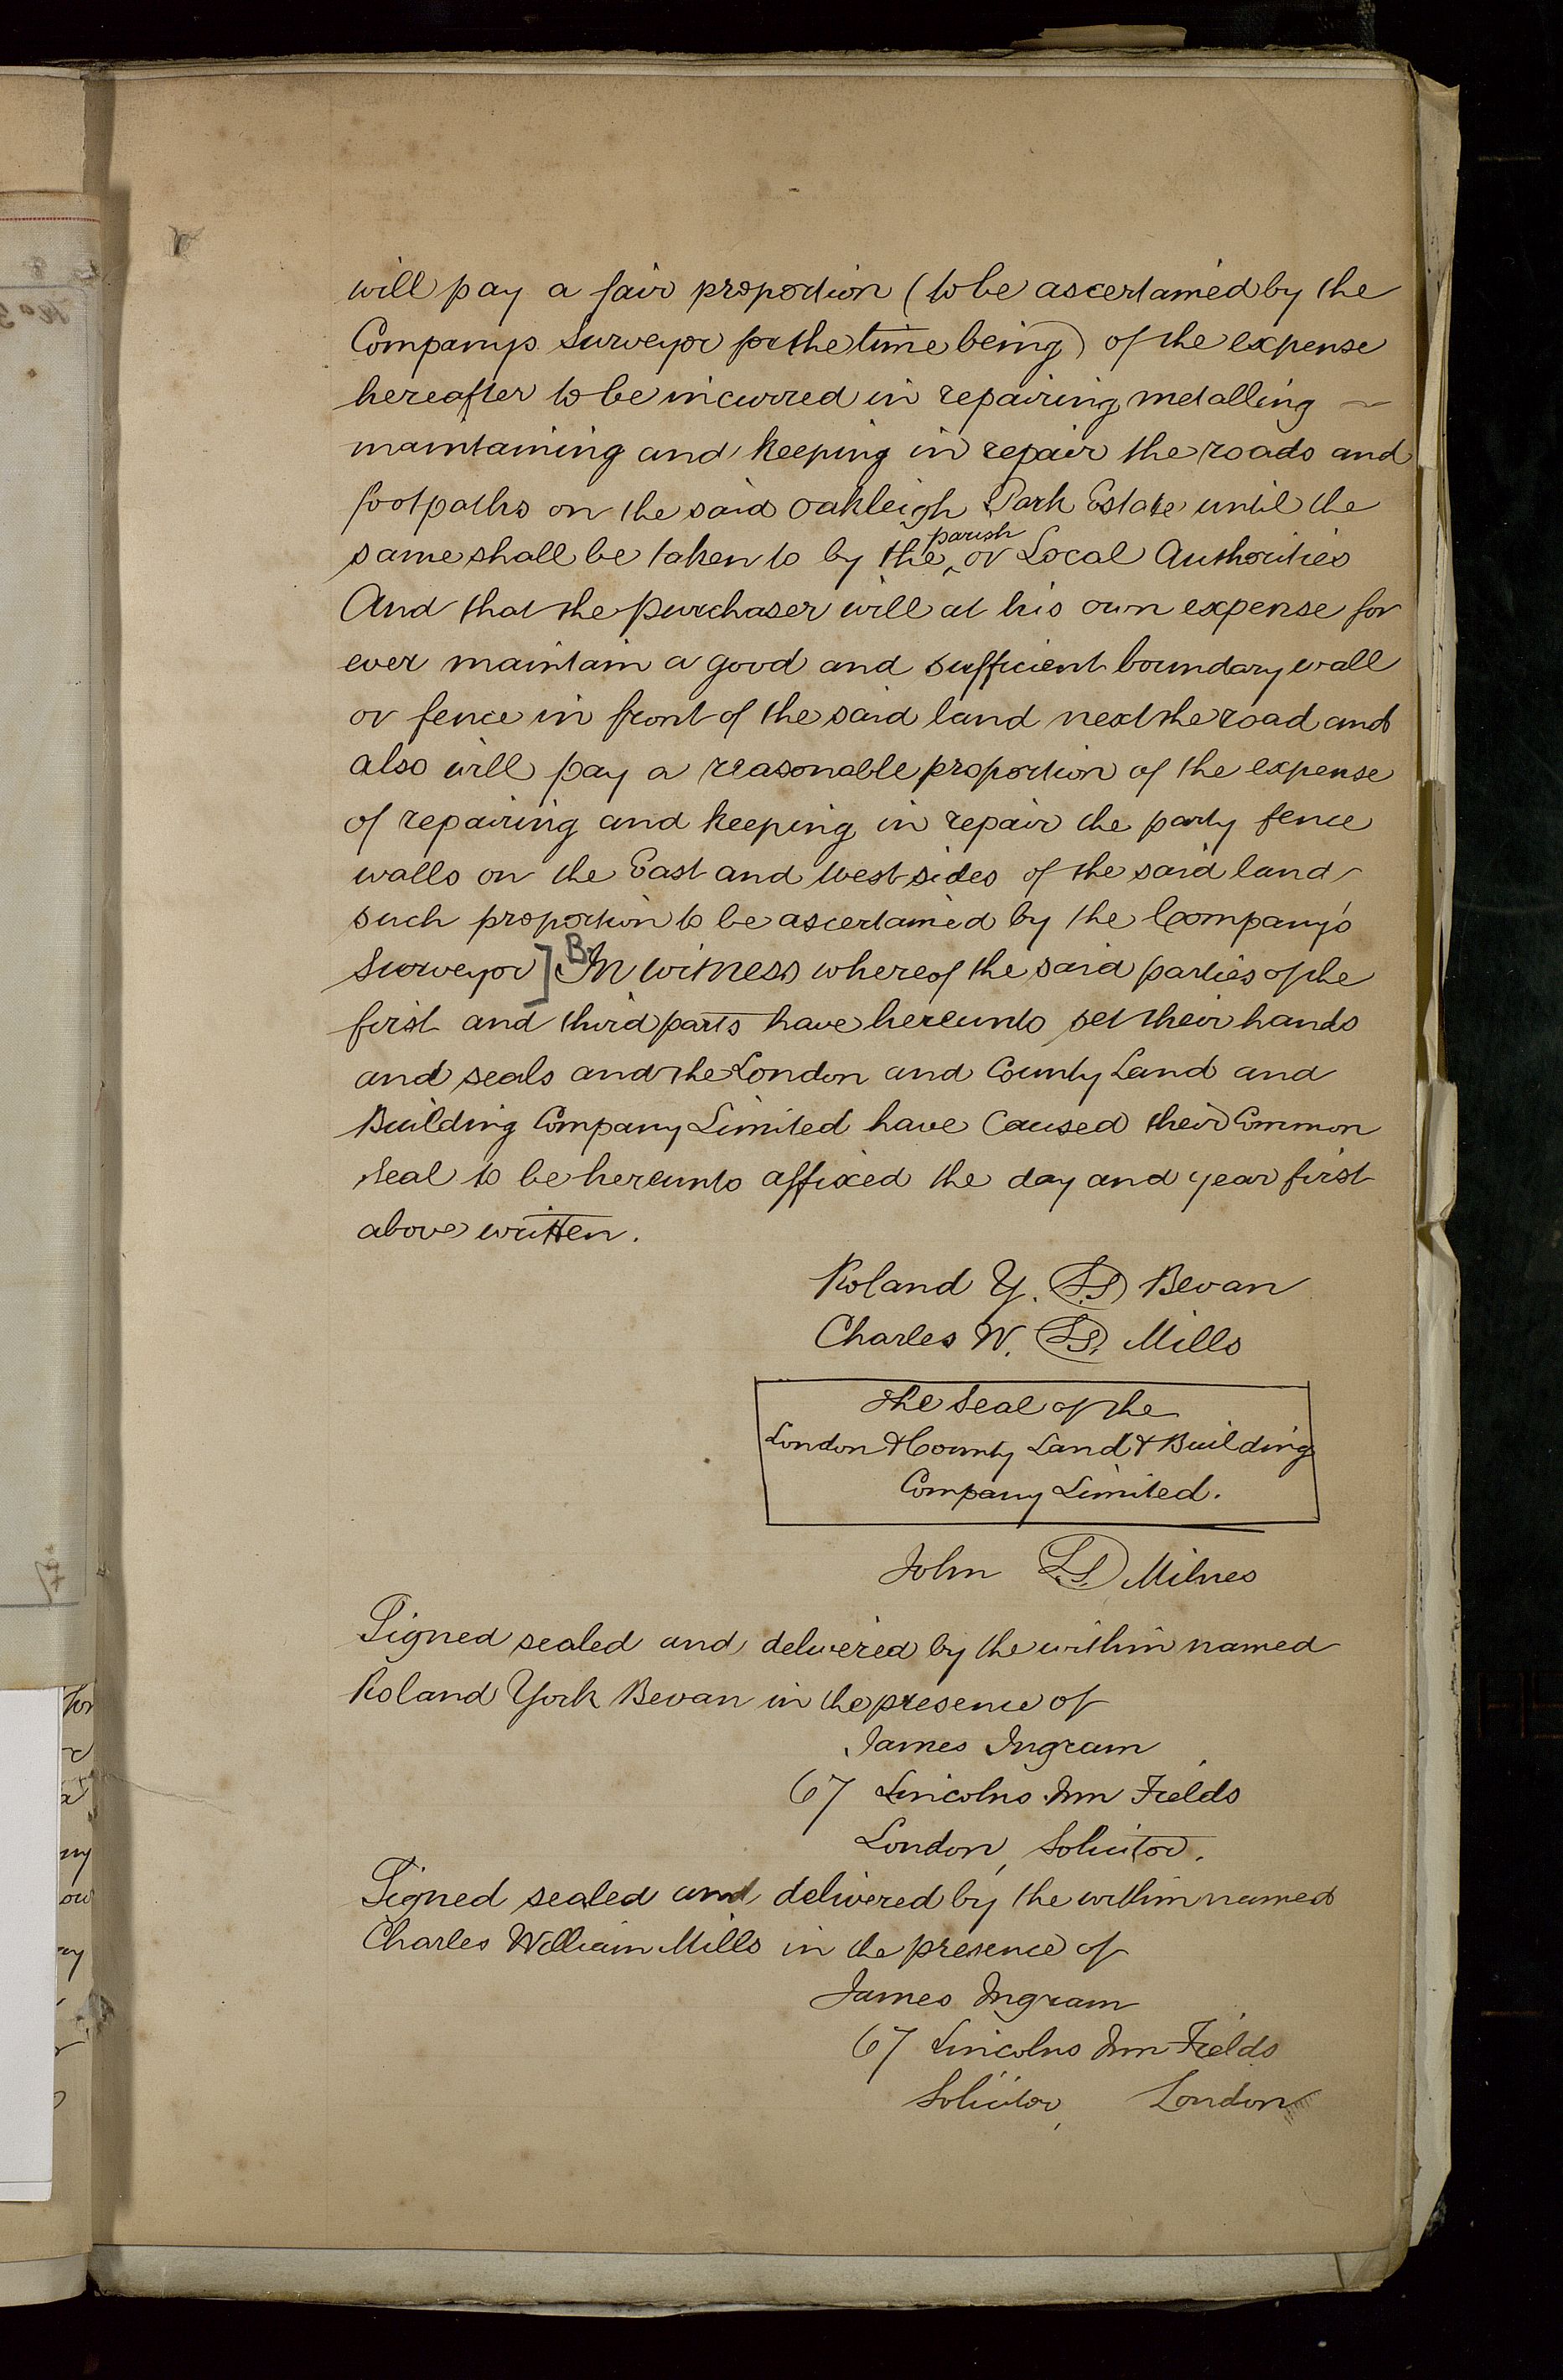 will pay a fair proportion (to be ascertained by the
Companys Surveyor for the time being) of the expense
hereafter to be incurred in repairing metalling ~
maintaining and keeping in repair the roads and
footpaths on the said Oakleigh Park Estate until the
same shall be taken to by the ^parish or Local Authorities
And that the purchaser will at his own expense for
ever maintain a good and sufficient boundary wall
or fence in front of the said land next the road and
also will pay a reasonable proportion of the expense
of repairing and keeping in repair the party fence
walls on the East and West sides of the said land
such proportion to be ascertained by the Company's
Surveyor] B In witness whereof the said parties of the
first and third parts have hereunto set their hands
and seals and the London and County Land and
Building Company Limited have caused their Common
Seal to be hereunto affixed the day and year first
above written.
Roland Y. L.S Bevan
Charles W. L.S. Mills
The Seal of the
London & County Land & Building
Company Limited.
John L.S. Milnes
Signed sealed and delivered by the within named
Roland York Bevan in the presence of
James Ingram
67 Lincolns Inn Fields
London, Solicitor.
Signed sealed and delivered by the within named
Charles William Mills in the presence of
James Ingram
67 Lincolns Inn Fields
Solicitor, London